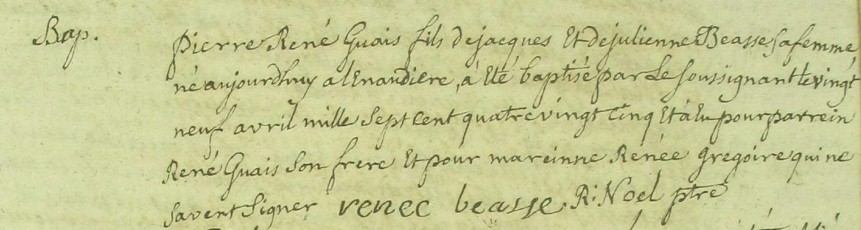 Bap. pierre René Guais fils de jacques Et de julienne Beasse sa femme
né aujourdhuy a lEnaudiere, à Eté baptisé par Le soussignant le vingt
neuf avril mille sept cent quatre vingt cinq Et à Eu pour parrein
René Guais son frere Et pour mareinne Renée gregoire qui ne
savent signer renee beasse. R: Noël ptre